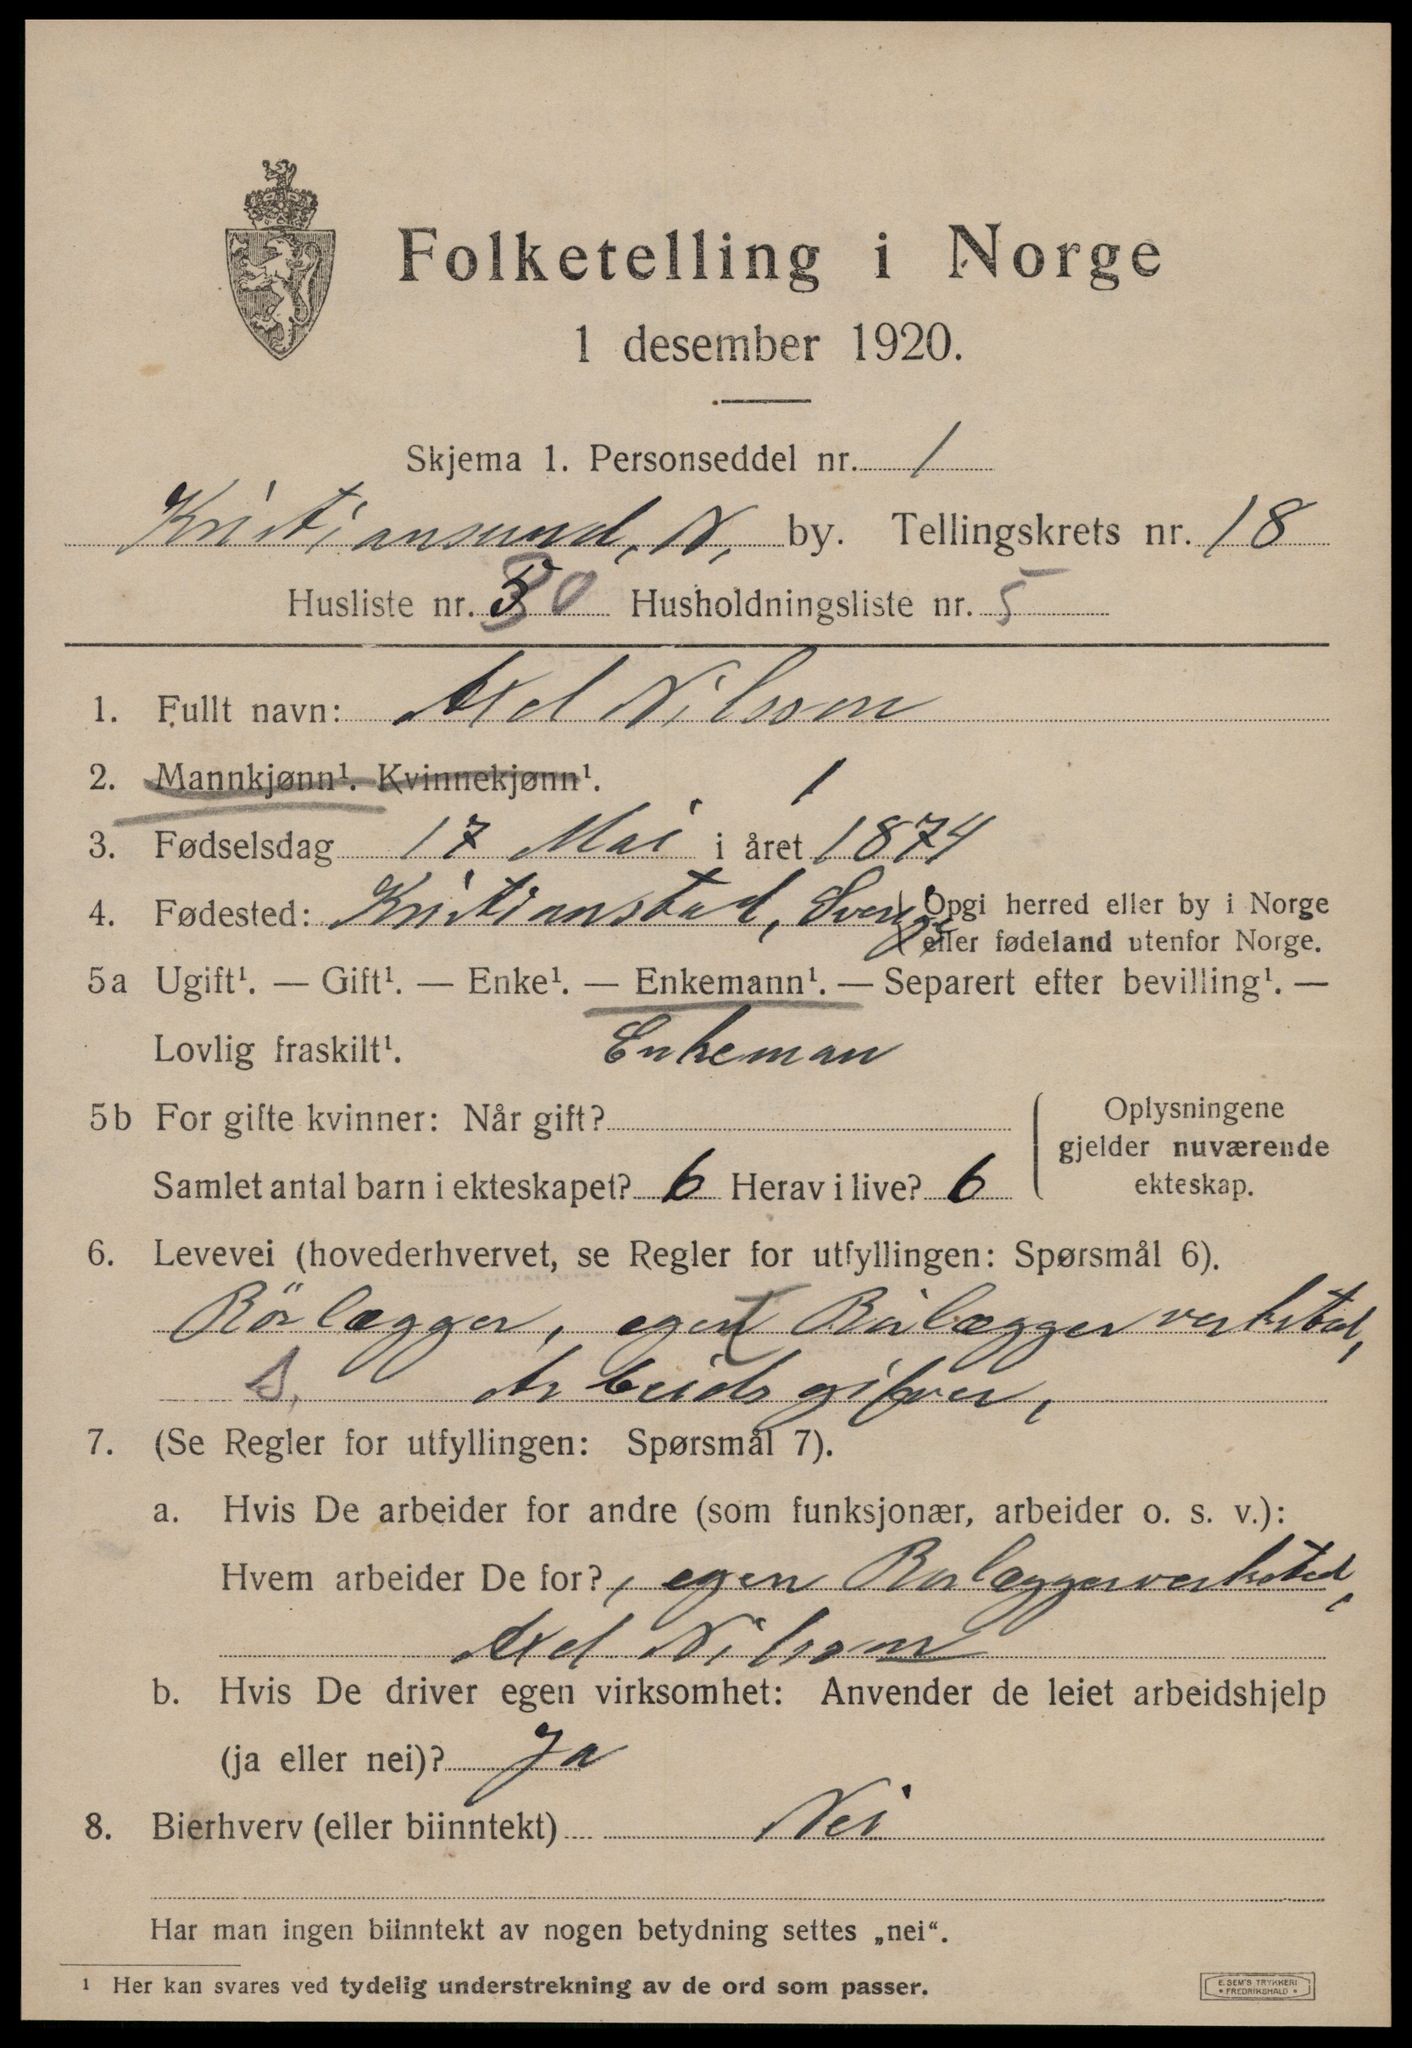 Folketelling i Norge
1 desember 1920.
Skjema 1. Personseddel nr. 1
Kristiansund, N, by. Tellingskrets nr. 18
Husliste nr. 30 Husholdningsliste nr. 5
1. Fullt navn: Axel Nilsson
2. Mannkjønn¹. Kvinnekjønn¹. 1
3. Fødselsdag 17 Mai i året 1874
4. Fødested: Kristianstad, Sverge { Opgi herred eller by i Norge
eller fødeland utenfor Norge.
5a Ugift¹. — Gift¹. — Enke¹. — Enkemann¹. — Separert efter bevilling¹. —
Lovlig fraskilt¹. Enkeman
5b For gifte kvinner: Når gift?
Samlet antal barn i ekteskapet? 6 Herav i live? 6
Oplysningene
gjelder nuværende
ekteskap.
6. Levevei (hovederhvervet, se Regler for utfyllingen: Spørsmål 6).
Rörlægger, egen Rörlæggerverksted,
S. Arbeidsgifver,
7. (Se Regler for utfyllingen: Spørsmål 7).
a. Hvis De arbeider for andre (som funksjonær, arbeider o. s. v.):
Hvem arbeider De for?, egen Rorlæggerverksted,
Axel Nilsson
b. Hvis De driver egen virksomhet: Anvender de leiet arbeidshjelp
(ja eller nei)? Ja
8. Bierhverv (eller biinntekt) Nei
Har man ingen biinntekt av nogen betydning settes „nei“.
¹ Her kan svares ved tydelig understrekning av de ord som passer.
E. SEM'S TRYKKERI
• FREDRIKSHALD •